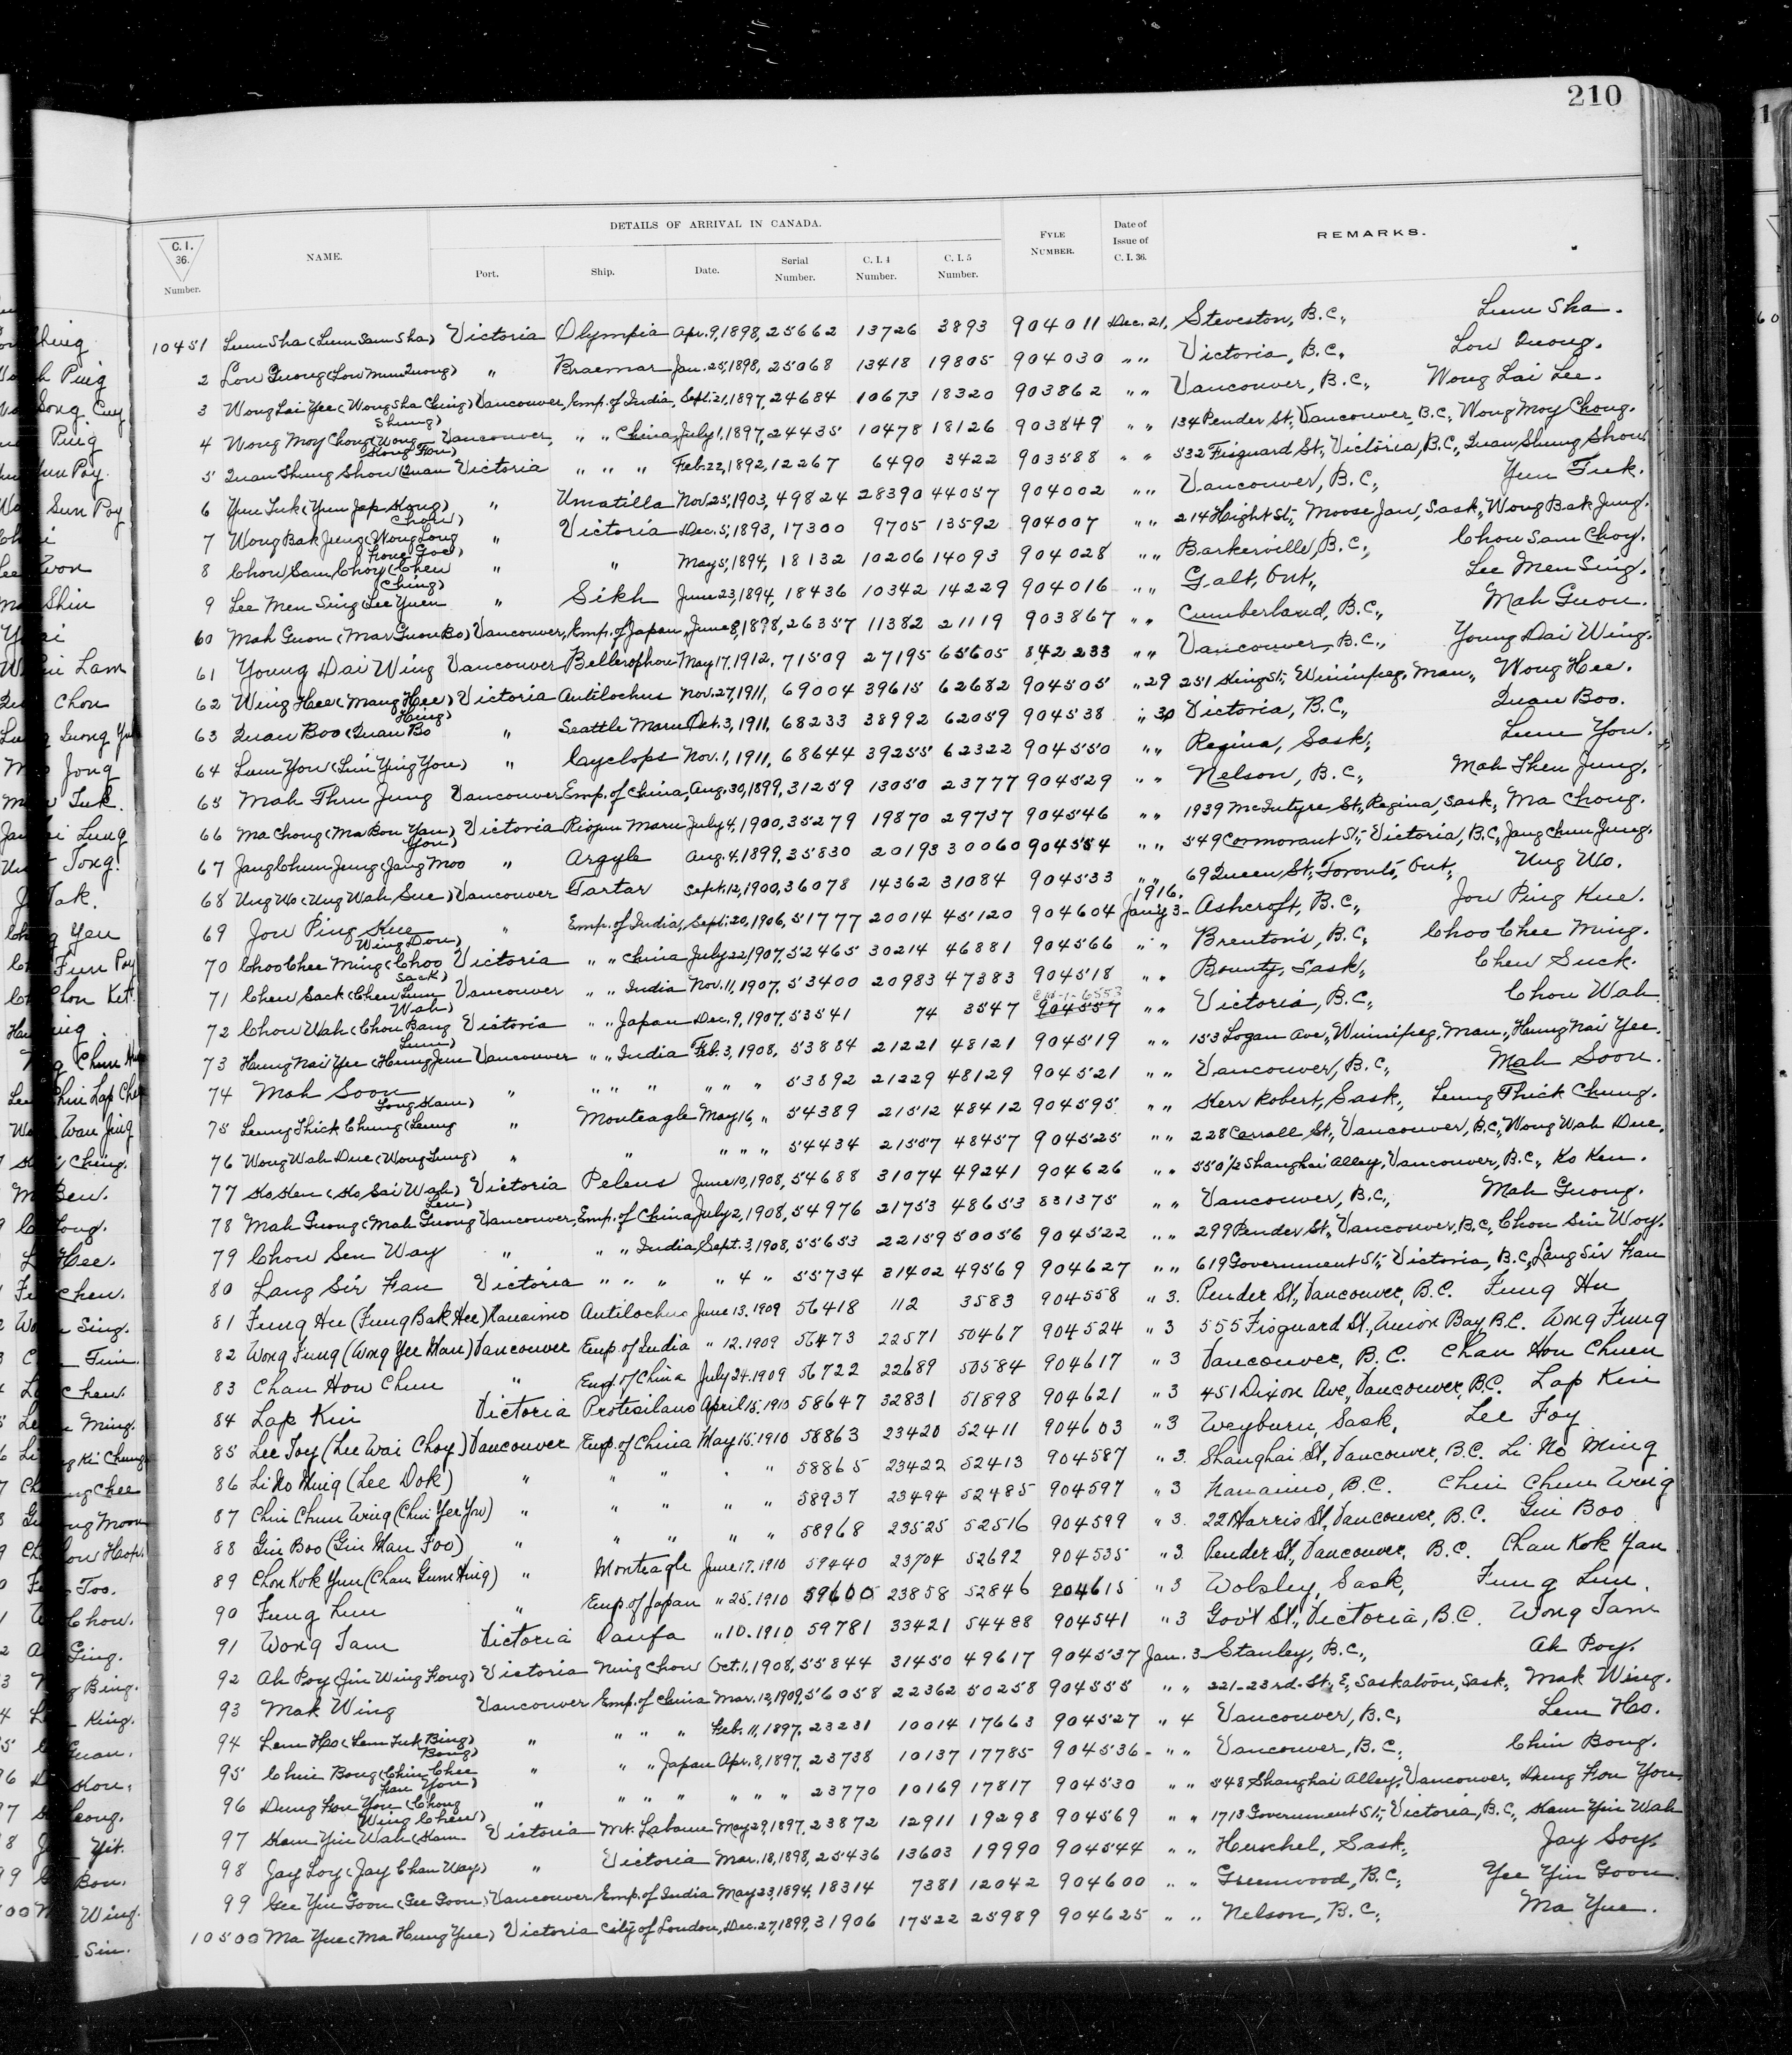 210
C. I. 36. Number.
NAME.
DETAILS OF ARRIVAL IN CANADA.
Port. Ship. Date. Serial Number. C. I. 4 Number. C. I. 5 Number.
FYLE NUMBER.
Date of Issue of C. I. 36.
REMARKS.
10451 Lum Sha (Lum Sam Sha) Victoria Olympia Apr. 9, 1898, 25662 13726 3893 904011 Dec. 21, Steveston, B.C., Lum Sha.
2 Low Quong (Low Mun Quong) " Braemar Jan. 25, 1898, 25068 13418 19805 904030 " " Victoria, B.C., Low Quong.
3 Wong Lai Yee (Wong Sha Ching) Vancouver, Emp. of India, Sept. 21, 1897, 24684 10673 18320 903862 " " Vancouver, B.C., Wong Lai Lee.
4 Wong Moy Chong (Wong Shung) Vancouver, " " China, July 1, 1897, 24435 10478 18126 903849 " " 134 Pender St., Vancouver, B.C., Wong Moy Chong.
5 Quan Shung Show (Quan Hong Fou) Victoria " " " Feb. 22, 1892, 12267 6490 3422 903588 " " 532 Fisguard St., Victoria, B.C., Quan Shung Show.
6 Yun Tuk (Yun Jap Kong) " Umatilla Nov. 25, 1903, 49824 28390 44057 904002 " " Vancouver, B.C., Yun Tuk.
7 Wong Bak Jung (Wong Long Chow) " Victoria Dec. 5, 1893, 17300 9705 13592 904007 " " 214 Hight St., Moose Jaw, Sask., Wong Bak Jung.
8 Chow Sam Choy (Chew Hong Goe) " " May 5, 1894, 18132 10206 14093 904028 " " Barkerville, B.C., Chow Sam Choy.
9 Lee Men Sing (Lee Yuen Ching) " Sikh June 23, 1894, 18436 10342 14229 904016 " " Galt, Ont., Lee Men Sing.
60 Mah Guon (Mar Guon Bo) Vancouver, Emp. of Japan, June 8, 1898, 26357 11382 21119 903867 " " Cumberland, B.C., Mah Guon.
61 Young Dai Wing Vancouver Bellerophon May 17, 1912, 71509 27195 65605 842233 " " Vancouver, B.C., Young Dai Wing.
62 Wing Hee (Mang Hee) Victoria Antilochus Nov. 27, 1911, 69004 39615 62682 904505 " 29 251 King St., Winnipeg, Man., Wong Hee.
63 Quan Boo (Quan Bo Hing) " Seattle Maru Oct. 3, 1911, 68233 38992 62059 904538 " 30 Victoria, B.C., Quan Boo.
64 Lum You (Lim Ying You) " Cyclops Nov. 1, 1911, 68644 39255 62322 904550 " " Regina, Sask., Lum You.
65 Mah Thru Jung Vancouver Emp. of China, Aug. 30, 1899, 31259 13050 23777 904529 " " Nelson, B.C., Mah Then Jung.
66 Ma Chong (Ma Bon Yau) Victoria Riojun Maru July 4, 1900, 35279 19870 29737 904546 " " 1939 McIntyre St., Regina, Sask., Ma Chong.
67 Jang Chun Jung (Jang Moo You) " Argyle Aug. 4, 1899, 35830 20193 30060 904554 " " 549 Cormorant St., Victoria, B.C., Jang Chun Jung.
68 Ung Wo (Ung Wah Sue) Vancouver Tartar Sept. 12, 1900, 36078 14362 31084 904533 " " 69 Queen St., Toronto, Ont., Ung Wo.
1916.
69 Jou Ping Kue " Emp. of India, Sept. 20, 1906, 51777 20014 45120 904604 Jan'y 3 - Ashcroft, B.C., Jou Ping Kue.
70 Choo Chee Ming (Choo Wing Dou) Victoria " " China July 22, 1907, 52465 30214 46881 904566 " " Brenton's, B.C., Choo Chee Ming.
71 Chew Sack (Chew Lum Sack) Vancouver " " India Nov. 11, 1907, 53400 20983 47383 904518 " " Bounty, Sask., Chew Suck.
72 Chou Wah (Chou Bang Wah) Victoria " " Japan Dec. 9, 1907, 53541 74 3547 904557 " " Victoria, B.C., Chou Wah
73 Heung Nai Yee (Heung Jim Lum) Vancouver " " India Feb. 3, 1908, 53884 21221 48121 904519 " " 153 Logan Ave., Winnipeg, Man., Heung Nai Yee.
74 Mah Soon " " " " " " " 53892 21229 48129 904521 " " Vancouver, B.C., Mah Soon.
75 Leung Thick Chung (Leung Long Kam) " Monteagle May 16, " 54389 21512 48412 904595 " " Kerr Robert, Sask., Leung Thick Chung.
76 Wong Wah Due (Wong Lung) " " " " " 54434 21557 48457 904525 " " 228 Carrall St., Vancouver, B.C., Wong Wah Due.
77 Ko Ken (Ko Sai Wah) Victoria Peleus June 10, 1908, 54688 31074 49241 904626 " " 550 1/2 Shanghai Alley, Vancouver, B.C., Ko Ken.
78 Mah Guong (Mah Guong Len) Vancouver, Emp. of China July 2, 1908, 54976 21753 48653 831375 " " Vancouver, B.C., Mah Guong.
79 Chow Sen Way " " " India, Sept. 3, 1908, 55653 22159 50056 904522 " " 299 Pender St., Vancouver, B.C., Chow Sin Woy.
80 Lang Sir Fan Victoria " " " " 4 " 55734 31402 49569 904627 " " 619 Government St., Victoria, B.C., Lang Sir Fan
81 Fung Hu (Fung Bak Hee) Nanaimo Antilochus June 13. 1909 56418 112 3583 904558 " 3. Pender St., Vancouver, B.C. Fung Hu
82 Wong Fung (Wong Yee Man) Vancouver Emp. of India " 12. 1909 56473 22571 50467 904524 " 3 555 Fisguard St., Union Bay B.C. Wong Fung
83 Chan How Chun " Emp. of China July 24. 1909 56722 22689 50584 904617 " 3 Vancouver, B.C. Chan Hon Chuen
84 Lap Kin Victoria Protesilaus April 15. 1910 58647 32831 51898 904621 " 3 451 Dixon Ave., Vancouver, B.C. Lap Kin
85 Lee Toy (Lee Wai Choy) Vancouver Emp. of China May 15. 1910 58863 23420 52411 904603 " 3 Weyburn, Sask, Lee Foy
86 Li No Ming (Lee Dok) " " " " " 58865 23422 52413 904587 " 3. Shanghai St., Vancouver, B.C. Li No Ming
87 Chin Chun Wing (Chin Yee You) " " " " " 58937 23494 52485 904597 " 3 Nanaimo, B.C. Chin Chun Wing
88 Gin Boo (Gin Man Foo) " " " " " 58968 23525 52516 904599 " 3. 221 Harris St., Vancouver, B.C. Gin Boo
89 Chon Kok Yun (Chan Gum Hing) " Monteagle June 17. 1910 59440 23704 52692 904535 " 3 Pender St., Vancouver, B.C. Chan Kok Yan
90 Fung Lun " Emp. of Japan " 25. 1910 59600 23858 52846 904615 " 3 Wolsley, Sask, Fung Lun.
91 Wong Tam Victoria Oanfa " 10. 1910 59781 33421 54488 904541 " 3 Gov't St., Victoria, B.C. Wong Tam
92 Ah Poy (Jin Wing Fong) Victoria Ning Chow Oct. 1, 1908, 55844 31450 49617 904537 Jan. 3 Stanley, B.C., Ah Poy.
93 Mak Wing Vancouver Emp. of China Mar. 12, 1909, 56058 22362 50258 904555 " " 221-23rd. St., E., Saskatoon, Sask., Mak Wing.
94 Lem Hao (Lem Tuk Bing) " " " " Feb. 11, 1897, 23231 10014 17663 904527 " 4 Vancouver, B.C., Lem Hao.
95 Chin Bong (Chin Chee Bong) " " " Japan Apr. 8, 1897, 23738 10137 17785 904536 - " " Vancouver, B.C., Chin Bong.
96 Dung Hon You (Chong Han You) " " " " " " " 23770 10169 17817 904530 " " 548 Shanghai Alley, Vancouver, Dung Hon You
97 Kam Yin Wah (Kam Wing Chew) Victoria Mt. Lebanon May 29, 1897, 23872 12911 19298 904569 " " 1713 Government St., Victoria, B.C., Kam Yin Wah
98 Jay Loy (Jay Chan Way) " Victoria Mar. 18, 1898, 25436 13603 19990 904544 " " Herschel, Sask., Jay Soy.
99 Gee Yin Goon (Gee Goon) Vancouver Emp. of India May 23, 1894, 18314 7381 12042 904600 " " Greenwood, B.C., Yee Yin Goon
10500 Ma Yue (Ma Hung Yue) Victoria City of London, Dec. 27, 1899, 31906 17522 25989 904625 " " Nelson, B.C., Ma Yue.